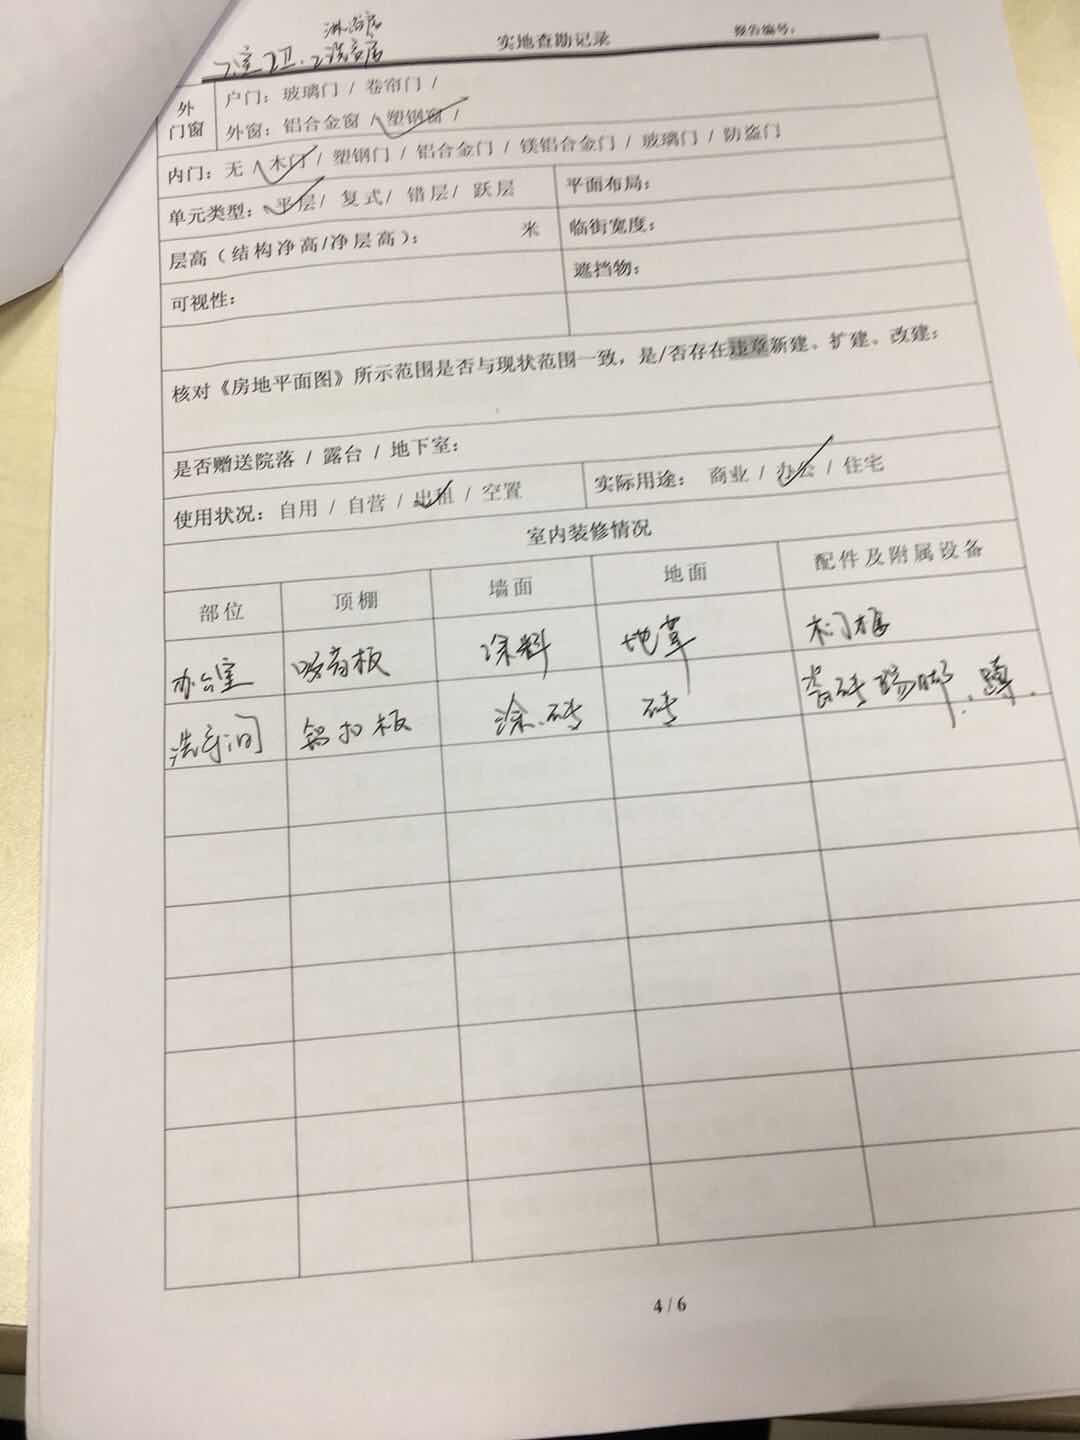 淋浴房
实地查勘记录
报告编号：
外门窗
户门：玻璃门 / 卷帘门 /
外窗：铝合金窗 / 塑钢窗 /
内门：无 / 木门 / 塑钢门 / 铝合金门 / 镁铝合金门 / 玻璃门 / 防盗门
单元类型：平层 / 复式 / 错层 / 跃层
平面布局：
层高（结构净高/净层高）： 米
临街宽度：
可视性：
遮挡物：
核对《房地平面图》所示范围是否与现状范围一致，是/否存在违章新建、扩建、改建：
是否赠送院落 / 露台 / 地下室：
使用状况：自用 / 自营 / 出租 / 空置
实际用途： 商业 / 办公 / 住宅
室内装修情况
部位 顶棚 墙面 地面 配件及附属设备
办公室 吸音板 涂料 地革 木门框
洗手间 铝扣板 涂.砖 砖 瓷砖踢脚.蹲.
4 / 6